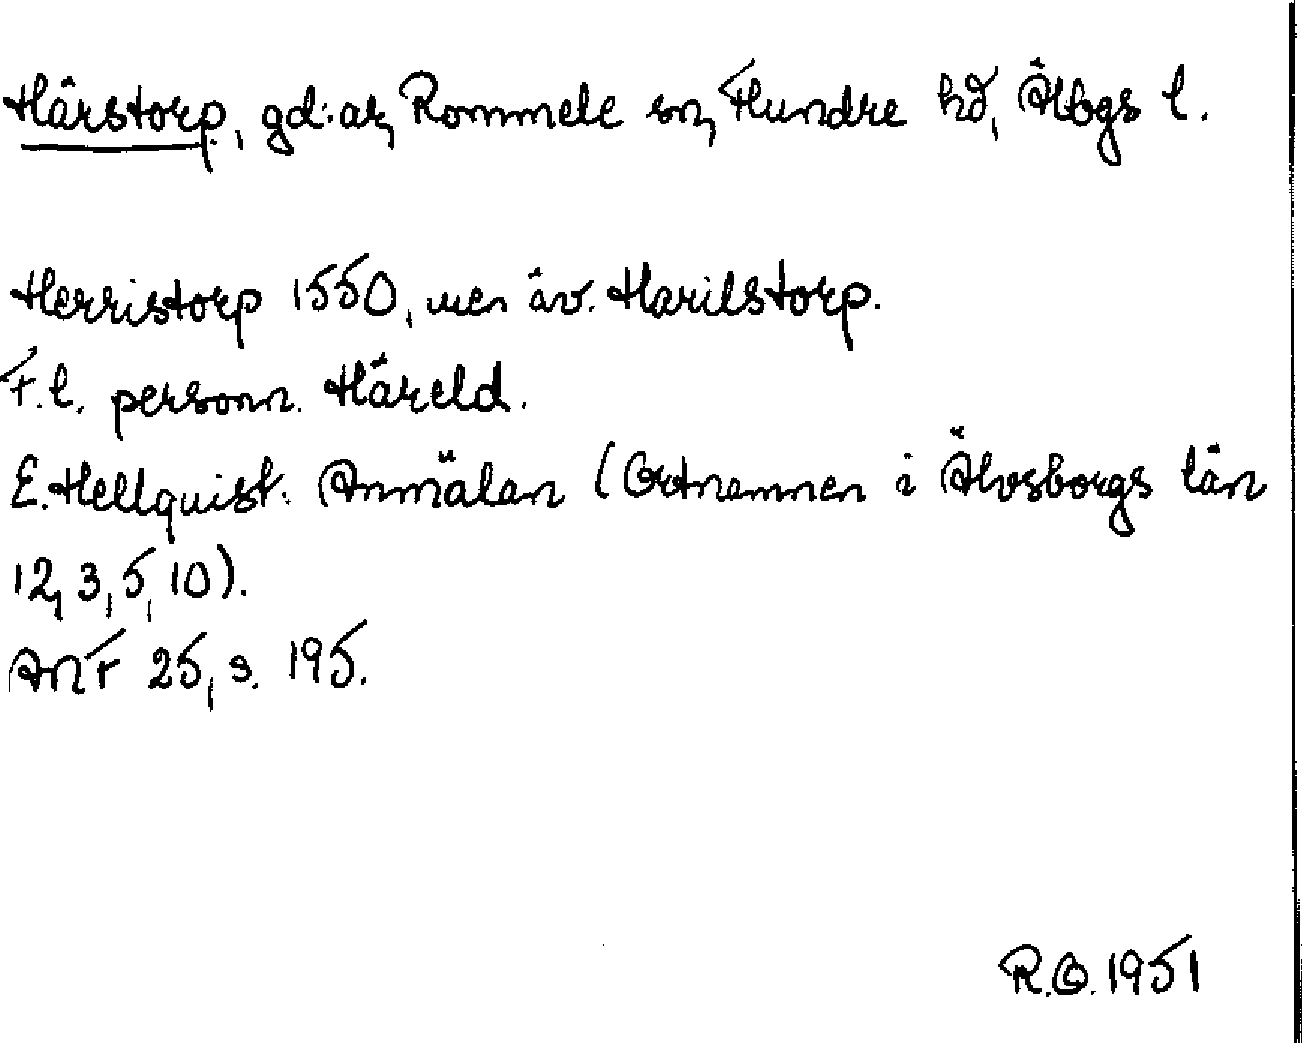 Härstorp, gd:ar, Rommele sn, Flundre hd, Älvbgs l.
Herristorp 1550, men äv. Harilstorp.
F.l. personn. Häreld.
E. Hellquist: Anmälan (Ortnamnen i Älvsborgs län
12, 3, 5, 10).
ANF 25, s. 195.
R.O. 1951